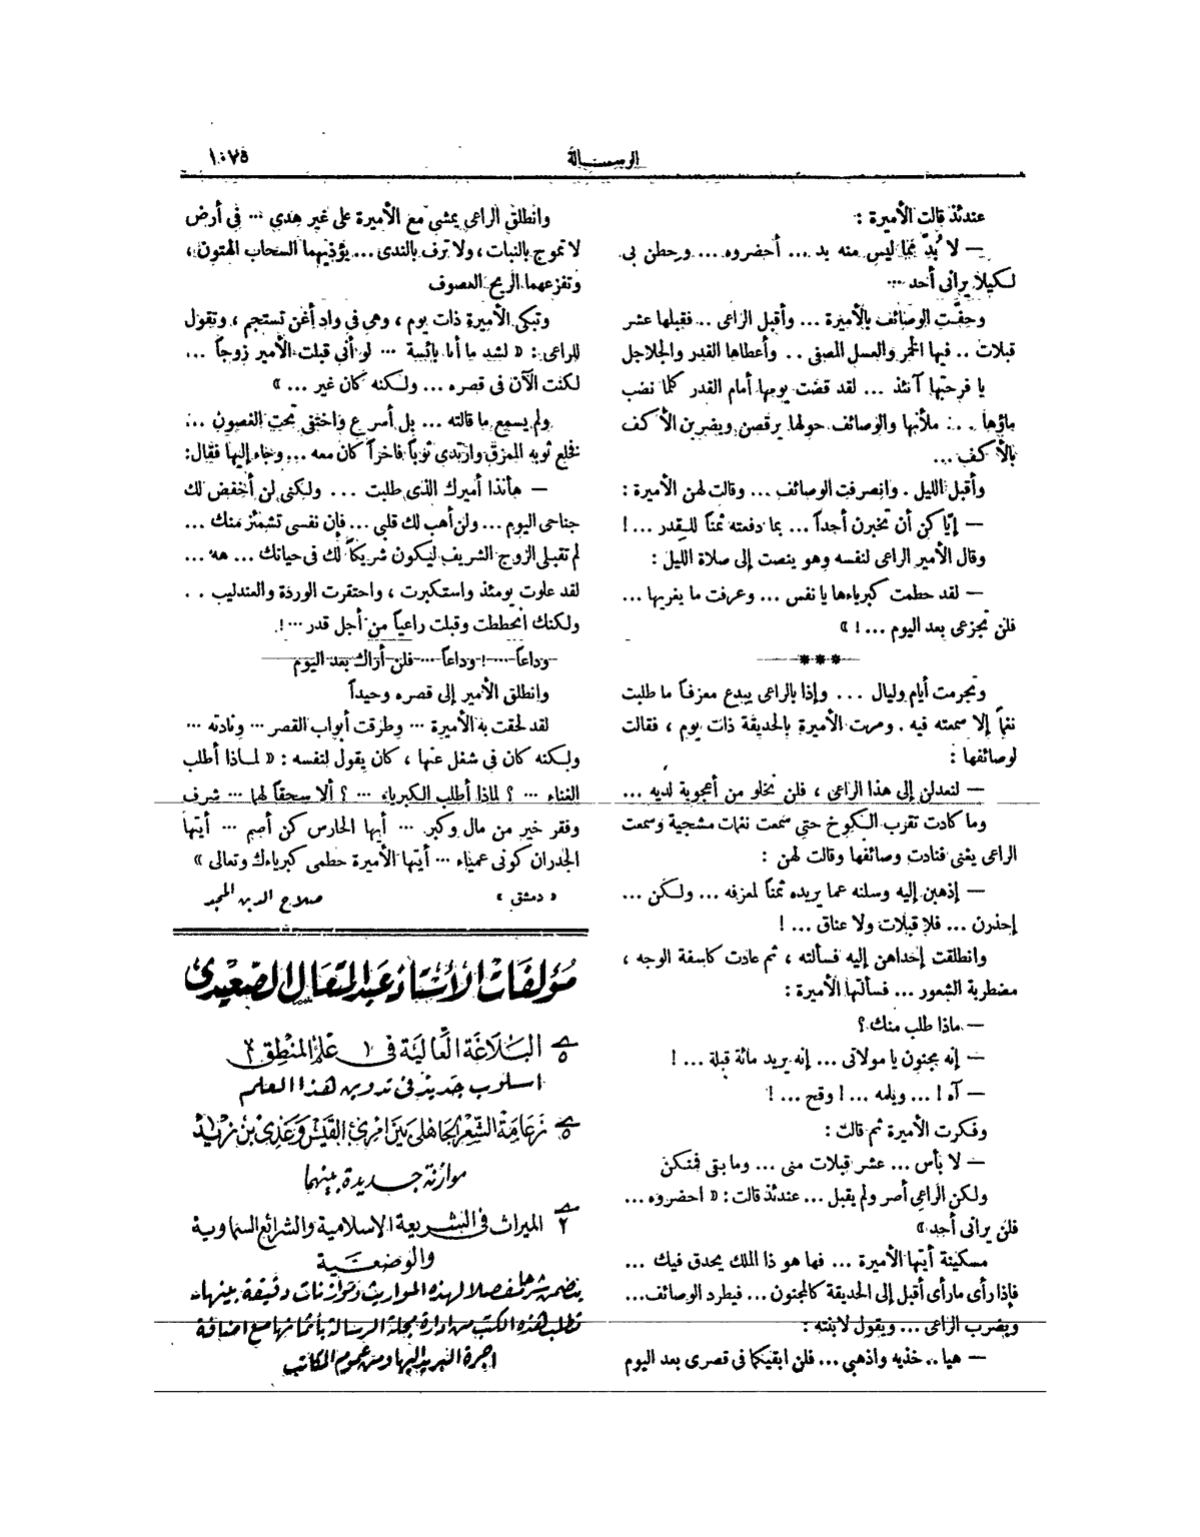 الرسـالة
١٠٧٥
عندئذ قالت الأميرة :
— لا بُدّ مما ليس منه بد ... أحضروه ... ورحطن بى
لكيلا يرانى أحد ...
وحفّت الوصائف بالأميرة ... وأقبل الراعى .. فقبلها عشر
قبلات .. فيها الخمر والعسل المصفى .. وأعطاها القدر والجلاجل
يا فرحتها آنئذ ... لقد قضت يومها أمام القدر كلما نضب
ماؤها ... ملأنها والوصائف حولها يرقصن ويضربن الأكف
بالأكف ...
وأقبل الليل . وانصرفت الوصائف ... وقالت لهن الأميرة :
— إيّاكن أن تخبرن أحداً ... بما دفعته ثمناً للقدر ... !
وقال الأمير الراعى لنفسه وهو ينصت إلى صلاة الليل :
— لقد حطمت كبرياءها يا نفس ... وعرفت ما يغريها ...
فلن تجزعى بعد اليوم ... ! »
***
وتجرمت أيام وليال ... وإذا بالراعى يبدع معزفاً ما طلبت
نغماً إلا سمعته فيه . ومرت الأميرة بالحديقة ذات يوم ، فقالت
لوصائفها :
— لنعدلن إلى هذا الراعى ، فلن نخلو من أعجوبة لديه ...
وما كادت تقرب الكوخ حتى سمعت نغمات مشجية وسمعت
الراعى يغنى فنادت وصائفها وقالت لهن :
— إذهبن إليه وسلنه عما يريده ثمناً لمعزفه ... ولكن ...
إحذرن ... فلا قبلات ولا عناق ... !
وانطلقت إحداهن إليه فسألته ، ثم عادت كاسفة الوجه ،
مضطربة الشعور ... فسألتها الأميرة :
— ماذا طلب منك ؟
— إنه مجنون يا مولاتى ... إنه يريد مائة قبلة ... !
— آه ! ... ويلمه ... ! وقح ... !
وفكرت الأميرة ثم قالت :
— لا بأس ... عشر قبلات منى ... وما بقى فمنكن
ولكن الراعى أصر ولم يقبل ... عندئذ قالت : « احضروه ...
فلن يرانى أحد »
مسكينة أيتها الأميرة ... فها هو ذا الملك يحدق فيك ...
فإذا رأى ما رأى أقبل إلى الحديقة كالمجنون ... فيطرد الوصائف ...
ويضرب الراعى ... ويقول لابنته :
— هيا .. خذيه واذهبي ... فلن ابقيكما فى قصرى بعد اليوم
وانطلق الراعى يمشى مع الأميرة على غير هدى ... فى أرض
لا تموج بالنبات ، ولا ترف بالندى ... يؤذيهما السحاب الهتون ،
وتفزعهما الريح العصوف
وتبكى الأميرة ذات يوم ، وهى فى واد أغن تستجم ، وتقول
للراعى : « لشد ما أنا بائسة ... لو أنى قبلت الأمير زوجاً ...
لكنت الآن فى قصره ... ولكنه كان غير ... »
ولم يسمع ما قالته ... بل أسرع واختفى تحت الغصون ...
فخلع ثوبه الممزق وارتدى ثوباً فاخراً كان معه ... وجاء إليها فقال :
— هأنذا أميرك الذى طلبت ... ولكنى لن أخفض لك
جناحى اليوم ... ولن أهب لك قلبى ... فإن نفسى تشمئز منك ...
لم تقبلى الزوج الشريف ليكون شريكاً لك فى حياتك ... هه ...
لقد علوت يومئذ واستكبرت ، واحتقرت الوردة والعندليب ..
ولكنك انحططت وقبلت راعياً من أجل قدر ... !
وداعاً ... ! وداعاً ... فلن أراك بعد اليوم
وانطلق الأمير إلى قصره وحيداً
لقد لحقت به الأميرة ... وطرقت أبواب القصر ... ونادته ...
ولكنه كان فى شغل عنها ، كان يقول لنفسه : « لماذا أطلب
الغناء ... ؟ لماذا أطلب الكبرياء ... ؟ ألا سحقاً لها ... شرف
وفقر خير من مال وكبر ... أيها الحارس كن أصم ... أيتها
الجدران كونى عمياء ... أيتها الأميرة حطمى كبرياءك وتعالى »
« دمشق » صلاح الدين المنجد
مؤلفات الأستاذ عبد المتعال الصعيدى
٥ البلاغة العالية فى ١ علم المنطق ٣
اسلوب جديد فى تدوين هذا العلم
٥ زعامة الشعر الجاهلى بين امرئ القيس وعدى بن زيد
موازنة جديدة بينهما
٢ الميراث فى الشريعة الاسلامية والشرائع السماوية
والوضعية
يتضمن شرحا مفصلا لهذه المواريث وموازنات دقيقة بينها
تطلب هذه الكتب من ادارة مجلة الرسالة بأثمانها مع اضافة
اجرة البريد اليها ومن عموم المكاتب